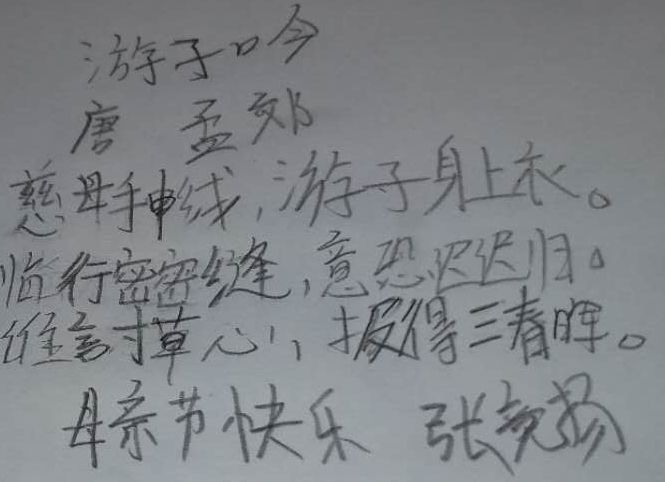 游子吟
唐 孟郊
慈母手申线,游子身上衣。
临行密密缝,意恐迟迟归。
谁言寸草心,报得三春晖。
母亲节快乐 张亮扬